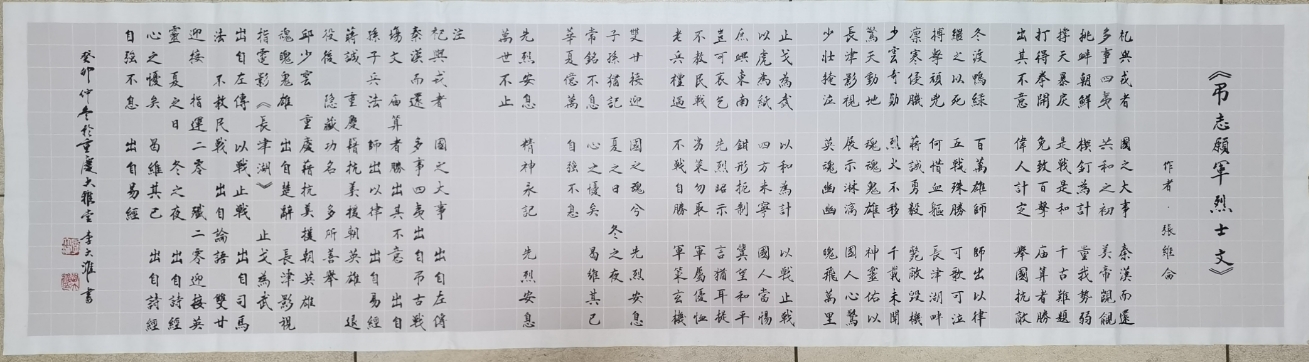 《弔志願軍烈士文》
作者·張維侖
祀與戎者 國之大事 秦漢而還
多事四夷 共和之初 美帝覬覦
挑衅朝鮮 楔釘為計 量我勢弱
撑天暴戾 是戰是和 千古難題
打得拳開 免致百拳 庙算者勝
出其不意 偉人計定 舉國抗敵
冬渡鴨綠 百萬雄師 師出以律
繼之以死 五戰殊勝 可歌可泣
搏擊頑兇 何惜血軀 長津湖畔
凛寒侵膶 蔣誠勇毅 斃敵毀機
少雲奇勁 烈火不移 千載未聞
驚天動地 魂魂鬼雄 神靈佑以
長津影視 展示淋漓 國人心驚
少壯掩泣 英魂幽幽 魄飛萬里
止戈為武 以和為計 以戰止戰
以虎為紙 四方未寧 國人當惕
庶峽東南 鉗形扼制 冀望和平
豈可哀乞 先烈昭示 言猶耳提
不教民戰 芻荛勿取 軍屬優恤
老兵禮遇 不戰自勝 軍策玄機
雙廿接迎 國之魂兮 先烈安息
子孫借記 夏之日 冬之夜
常銘不息 心之憂矣 曷維其已
華夏億萬 自強不息
先烈安息 精神永記 先烈安息
萬世不止
注
祀與戎者 國之大事 出自左傳
秦漢而還 多事四夷 出自弔古戰
塲文 庙算者勝出其不意 出自
孫子兵法 師出以律 出自易經
蔣誠 重慶籍抗美援朝英雄 退
役後 隐藏功名 多所善舉
邱少雲 重慶籍抗美援朝英雄
魂魄鬼雄 出自楚辭 長津影視
指電影《長津湖》 止戈為武
出自左傳 以戰止戰 出自司馬
法 不教民戰 出自論語 雙廿
迎接 指運二零 殲二零迎接英
靈 夏之日 冬之夜 出自詩經
心之憂矣 曷維其已 出自詩經
自強不息 出自易經
癸卯仲冬於重慶大雅堂 李大雅書